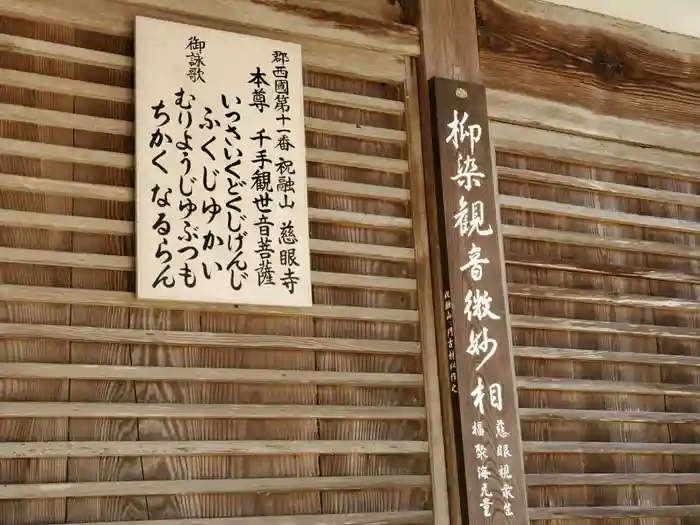 郡西國第十一番 祝融山 慈眼寺
本尊 千手観世音菩薩
いっさいくどくじげんじ
ふくじゆかい
むりようじゆぶつも
ちかくなるらん
御詠歌
柳染觀音微妙相
慈眼視衆生
福聚海无量